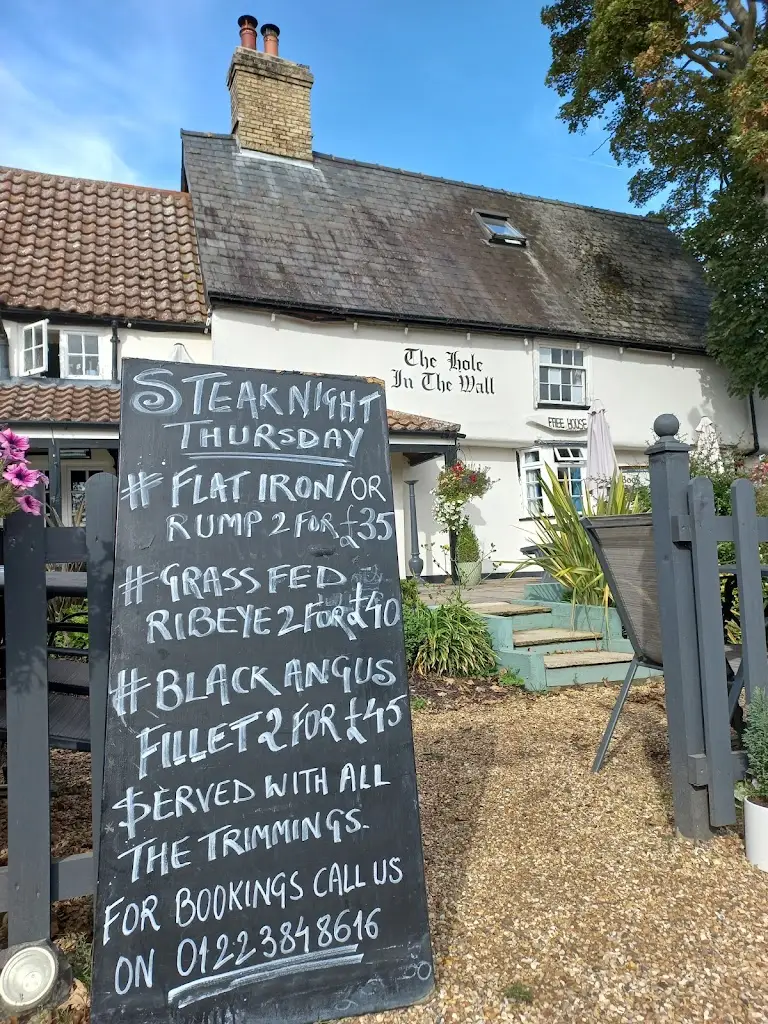 The Hole
In The Wall
FREE HOUSE
STEAK NIGHT
THURSDAY
# FLAT IRON/OR
RUMP 2 FOR £35
# GRASS FED
RIBEYE 2 FOR £40
# BLACK ANGUS
FILLET 2 FOR £45
SERVED WITH ALL
THE TRIMMINGS.
FOR BOOKINGS CALL US
ON 01223848616